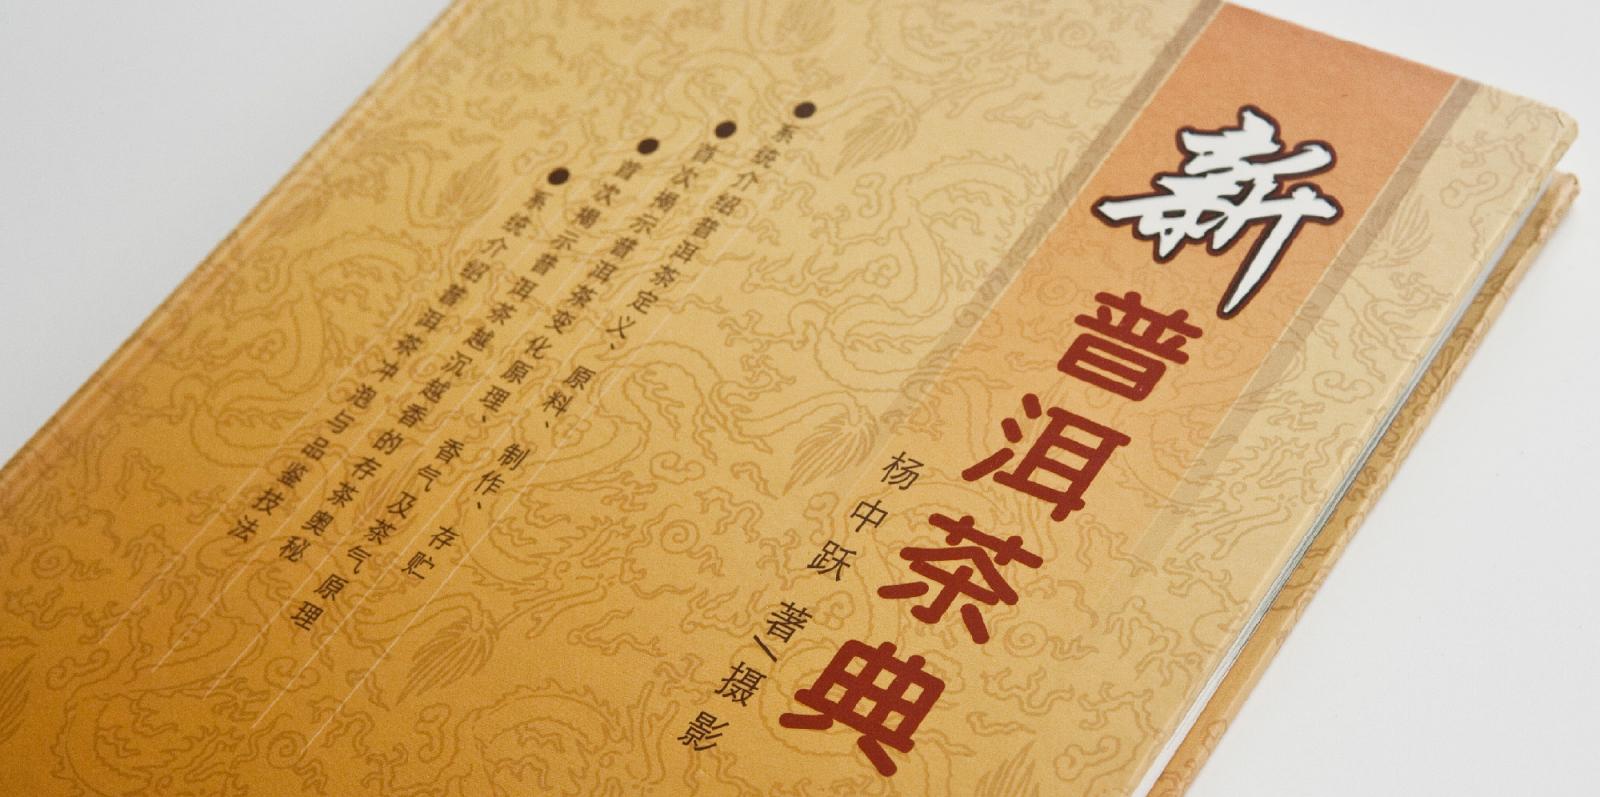 新普洱茶典
杨中跃 著/摄影
●系统介绍普洱茶定义、原料、制作、存贮
●首次揭示普洱茶变化原理、香气及茶气原理
●首次揭示普洱茶越沉越香的存茶奥秘
●系统介绍普洱茶冲泡与品鉴技法